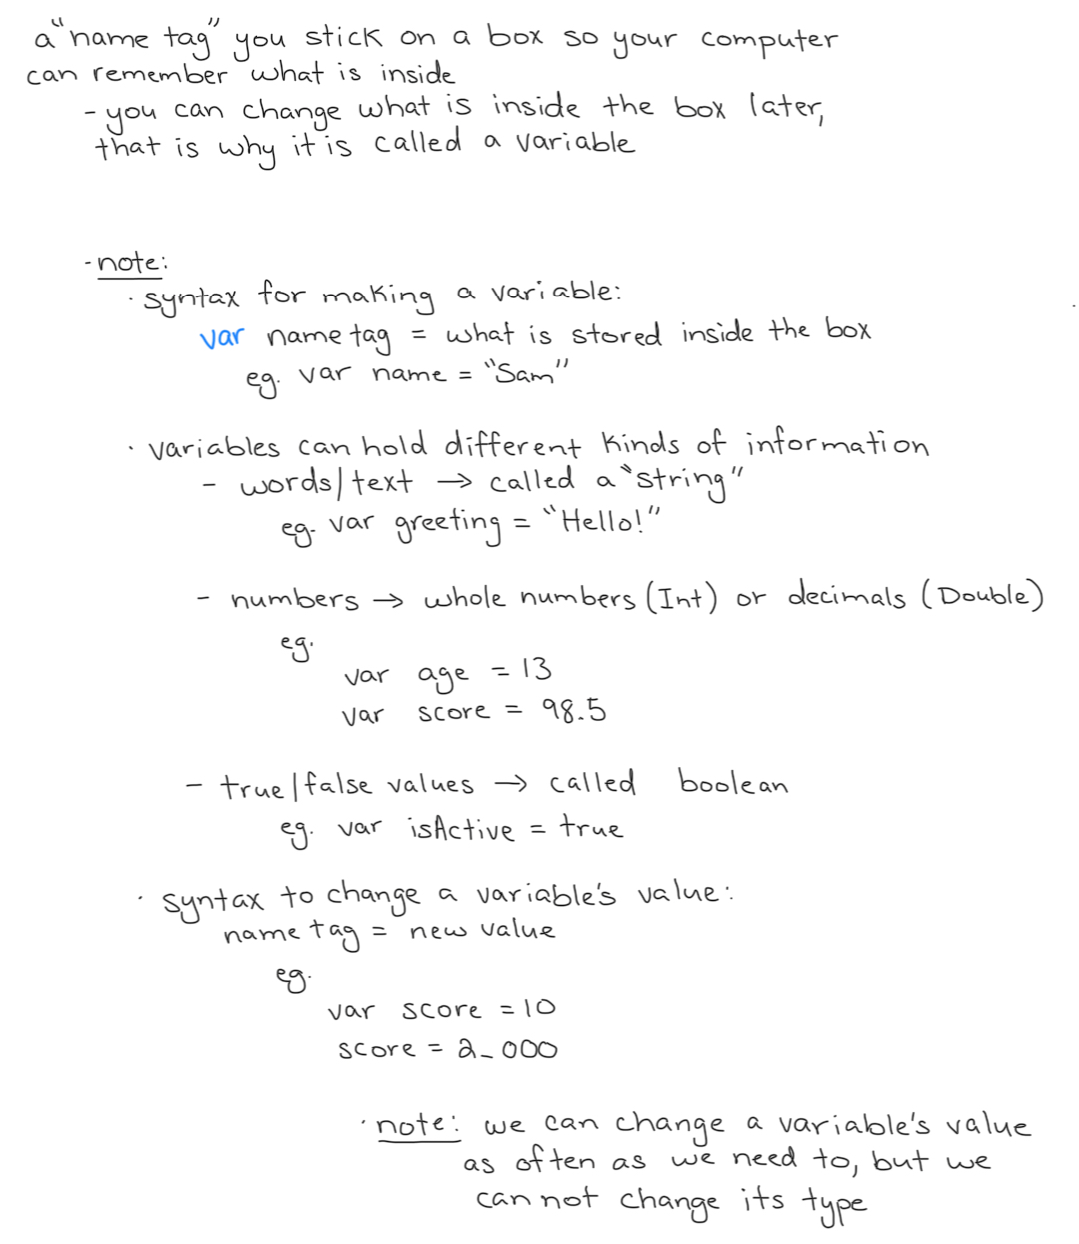 a "name tag" you stick on a box so your computer
can remember what is inside
- you can change what is inside the box later,
that is why it is called a variable
- note:
· syntax for making a variable:
var name tag = what is stored inside the box
eg. var name = "Sam"
· variables can hold different kinds of information
- words/text → called a "string"
eg. var greeting = "Hello!"
- numbers → whole numbers (Int) or decimals (Double)
eg.
var age = 13
var score = 98.5
- true/false values → called boolean
eg. var isActive = true
· syntax to change a variable's value:
name tag = new value
eg.
var score = 10
score = 2_000
· note: we can change a variable's value
as often as we need to, but we
can not change its type